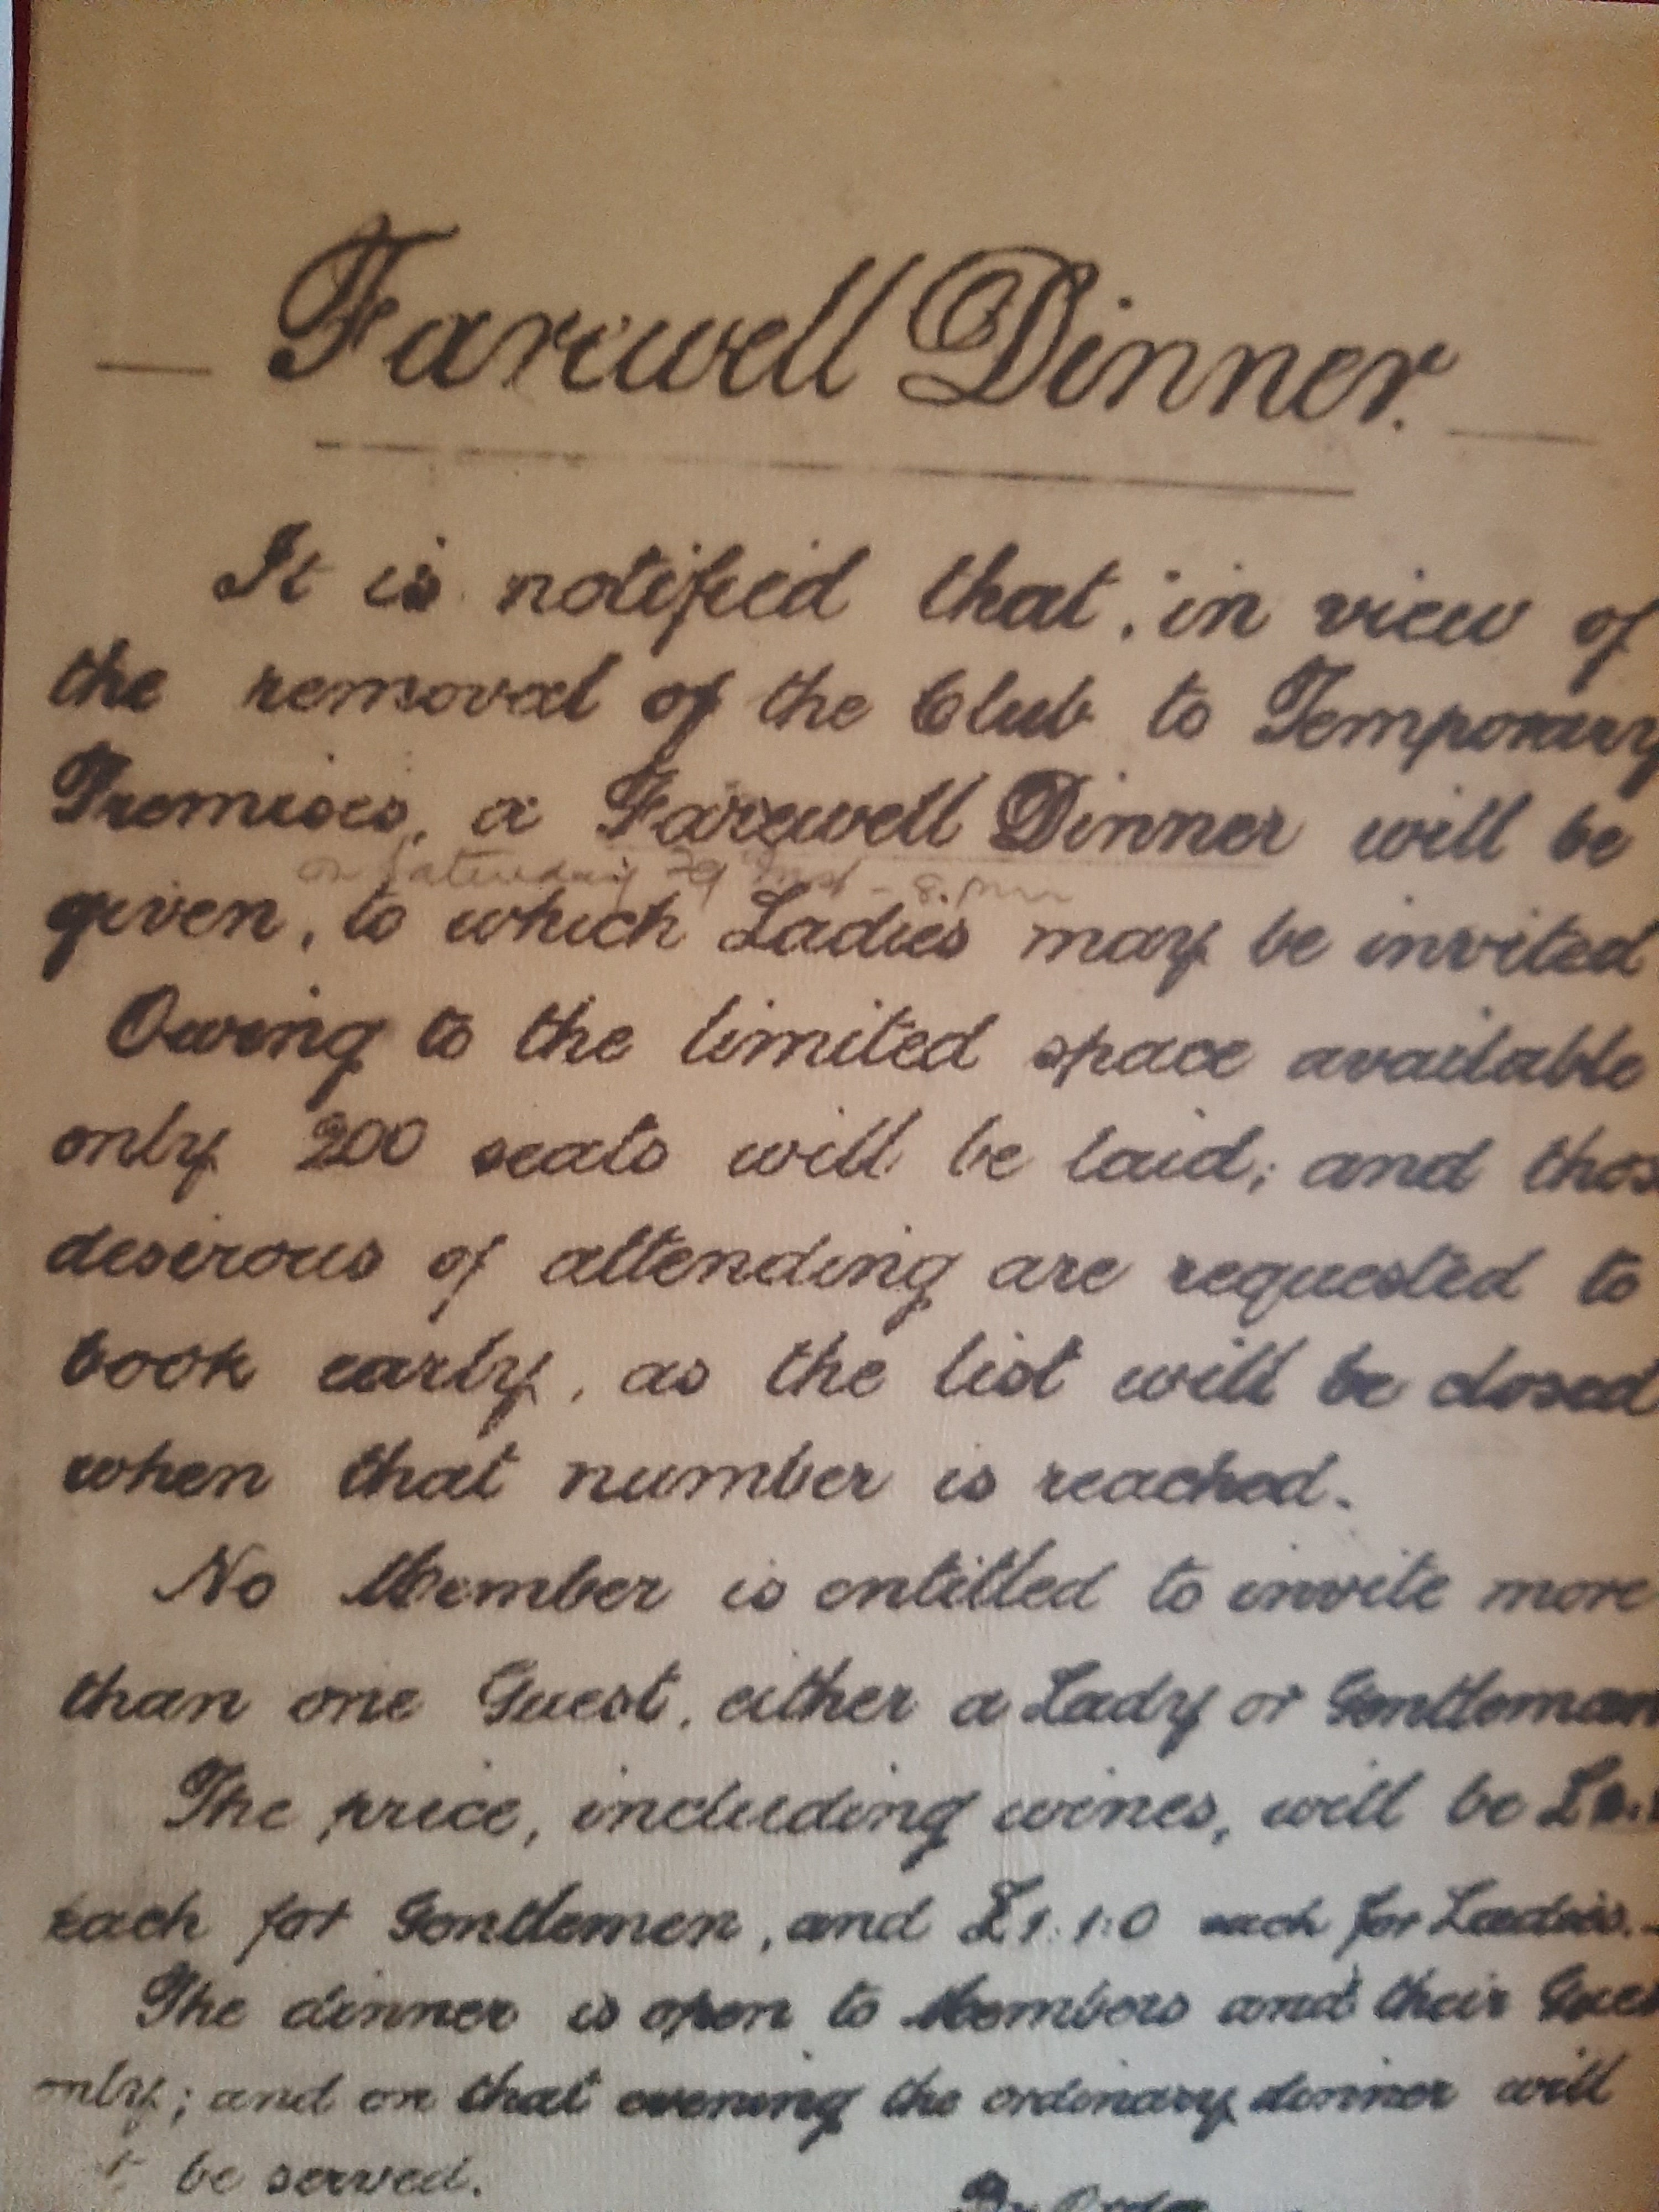 Farewell Dinner.
It is notified that, in view of
the removal of the Club to Temporary
Premises, a Farewell Dinner will be
on Saturday 29 Inst - 8. pm
given, to which Ladies may be invited
Owing to the limited space available
only 200 seats will be laid; and thos
desirous of attending are requested to
book early, as the list will be closed
when that number is reached.
No Member is entitled to invite more
than one Guest, either a Lady or Gentleman
The price, including wines, will be
each for Gentlemen, and £1.1.0 each for Ladies.
The dinner is open to Members and their Gues
only; and on that evening the ordinary dinner will
t be served.
By Orde